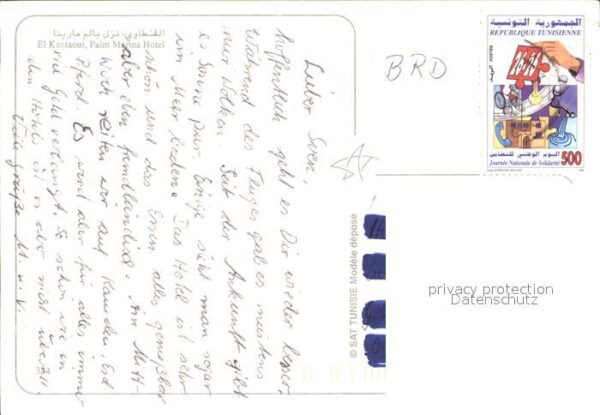 القنطاوي، نزل بالم مارينا
El Kantaoui, Palm Marina Hotel
Lieber Sven,
hoffentlich geht es Dir wieder besser.
Während des Fluges gab es meistens
nur Wolken. Seit der Ankunft gibt
es Sonne pur. Einige sieht man sogar
im Meer baden. Das Hotel ist sehr
schön und das Essen alles genießbar
aber eben fremdländisch. Am Mitt-
woch reiten wir auf Kamelen, Esel
Pferd. Es wird aber für alles immer
viel Geld verlangt. So schön wie in
den Hotels ist es aber nicht überall.
Viele Grüße M. u. V.
BRD
© SAT TUNISIE Modèle déposé
الجمهورية التونسية
REPUBLIQUE TUNISIENNE
POSTES
البريد
اليوم الوطني للتضامن
Journée Nationale de Solidarité
500
privacy protection
Datenschutz